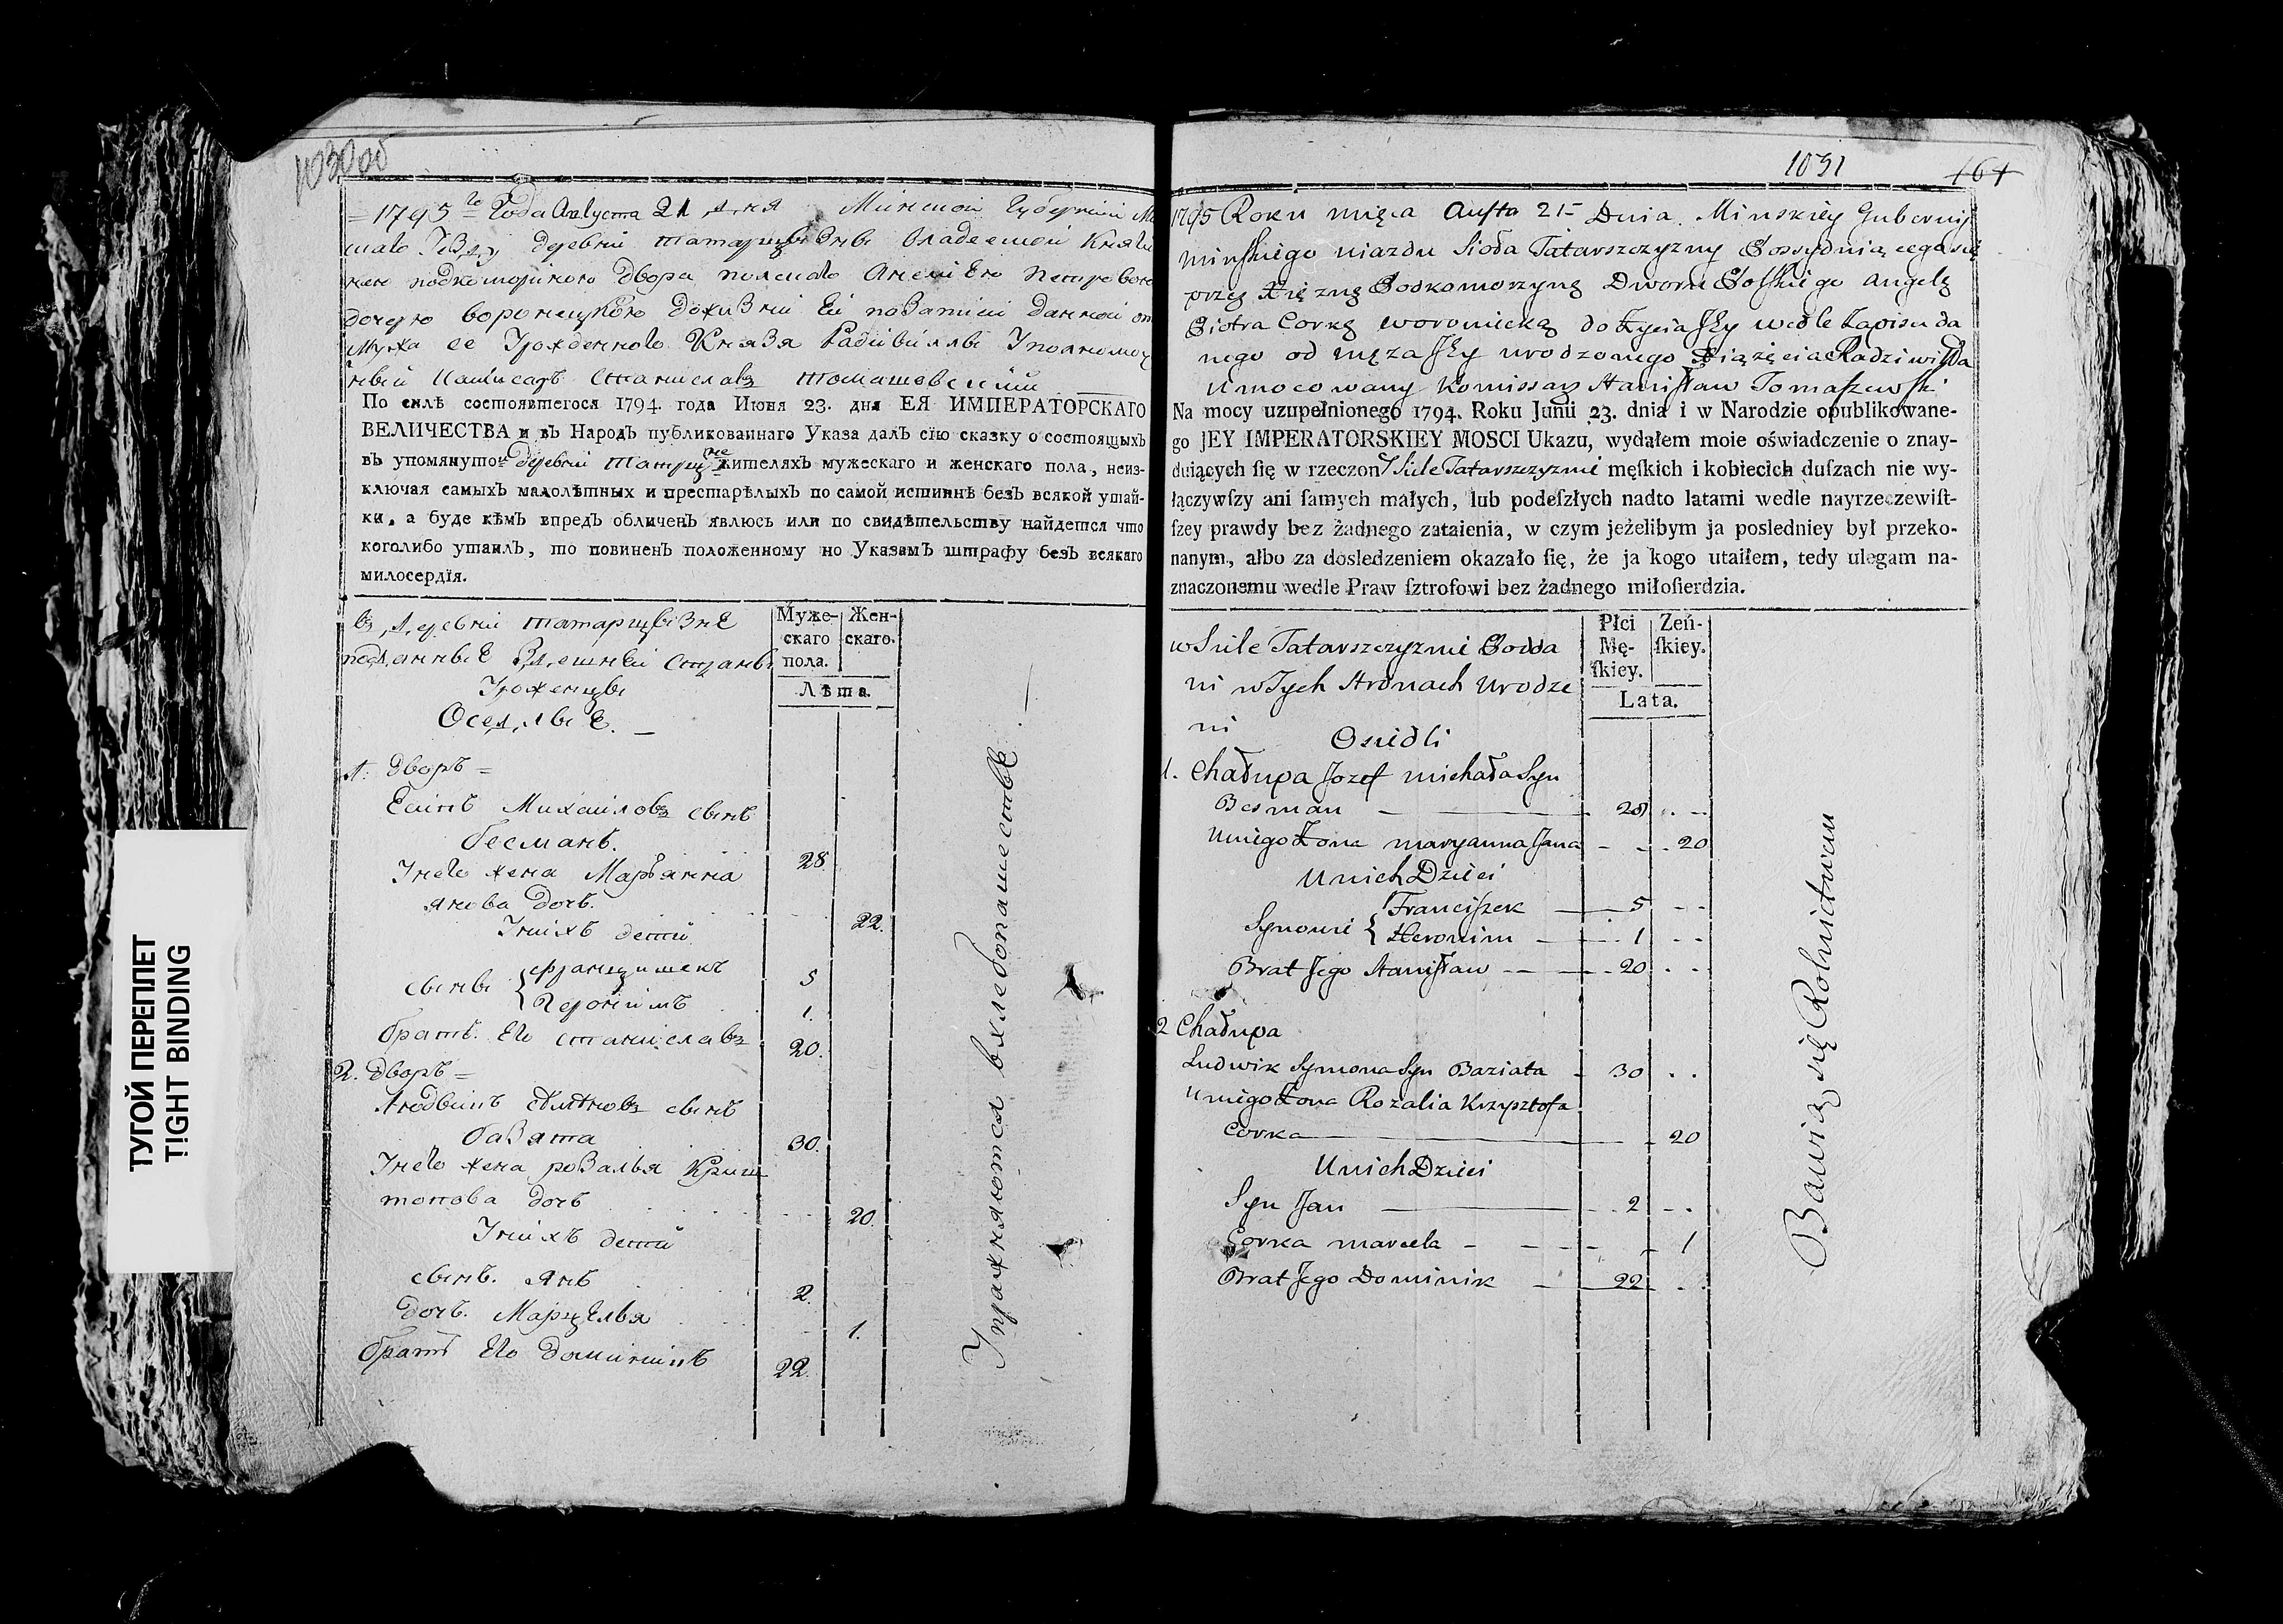 1030 об
1795 го Года Августа 21 дня Минской Губерніи
шаго деревни татарщизне владеемой
подкомориною двора полскаго Петрово
дочерю воронецкою данной от
Мужа ее Урожденнаго Князя Радивилле Уполномоч
Станиславъ томашевскій
По силѣ состоявшегося 1794. года Июня 23. дня ЕЯ ИМПЕРАТОРСКАГО
ВЕЛИЧЕСТВА и въ Народъ публикованнаго Указа далъ сїю сказку о состоящыхъ
въ упомянутой деревни жителяхъ мужескаго и женскаго пола, неиз-
ключая самыхъ малолѣтныхъ и престарѣлыхъ по самой истиннѣ безъ всякой утай-
ки, а буде кѣмъ впредъ обличенъ явлюсь или по свидѣтельству найдется что
коголибо утаилъ, то повиненъ положенному по Указамъ штрафу безъ всякаго
милосердїя.
въ деревни татарщизне
подданные здешней страны
Уроженцы
Оседлые.
Муже-
скаго
пола.
Жен-
скаго.
Лѣта.
1. дворъ =
Михаиловъ сынъ
бесманъ. 28.
У него жена Марьянна
янова дочь. 22.
У нихъ дети
сыны { францишекъ 5
Героніимъ 1.
братъ Его станиславъ 20.
2. дворъ =
Людвикъ сынъ
базята 30.
У него жена розалья Криш
топова дочь 20.
У нихъ дети
сынъ. янъ 2.
дочь. Марцелья 1.
братъ Его доминикъ 22.
Упражняются в хлебопашестве.
1031
161
1795 Roku mięca Austa 21 Dnia Minskiey Gubernij
minskiego uiazdu Sioła Tatarszczyzny
przez Xięzną Podkomorzyną Dworu Polskiego Angelą
Piotra Corkę woronicką do Życia Jey wedle Zapisu da
nego od męza Jey urodzonego Xiązęcia Radziwiłła
Umocowany Komissarz Stanisław Tomaszewski
Na mocy uzupełnionego 1794. Roku Junii 23. dnia i w Narodzie opublikowane-
go JEY IMPERATORSKIEY MOSCI Ukazu, wydałem moie oświadczenie o znay-
duiących ſię w rzeczon Siele Tatarszczyznie męſkich i kobiecich duſzach nie wy-
łączywſzy ani ſamych małych, lub podeſzłych nadto latami wedle nayrzeczewiſt-
ſzey prawdy bez żadnego zataienia, w czym jeżelibym ja posledniey był przeko-
nanym, albo za dosledzeniem okazało ſię, że ja kogo utaiłem, tedy ulegam na-
znaczonemu wedle Praw ſztrofowi bez żadnego miłoſierdzia.
w Siele Tatarszczyznie Podda
ni w Tych Stronach Urodze
ni
Osiedli
Płci
Mę-
ſkiey.
Zeń-
ſkiey.
Lata.
1. Chałupa Jozef michała Syn
Besman 28
U niego Żona maryanna Jana 20
U nich Dzieci
Synowie { Franciszek 5
Heronim 1
Brat Jego Stanisław 20
2 Chałupa
Ludwik Symona Syn Baziata 30
U niego Żona Rozalia Krzysztofa
Corka 20
U nich Dzieci
Syn Jan 2
Corka marcela 1
Brat Jego Dominik 22
Bawią się Rolnictwem
ТУГОЙ ПЕРЕПЛЕТ
TIGHT BINDING